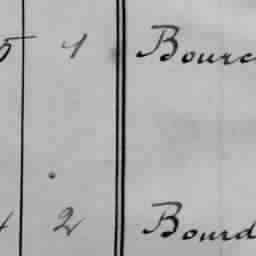 5 1 Bourc
2 Bourd